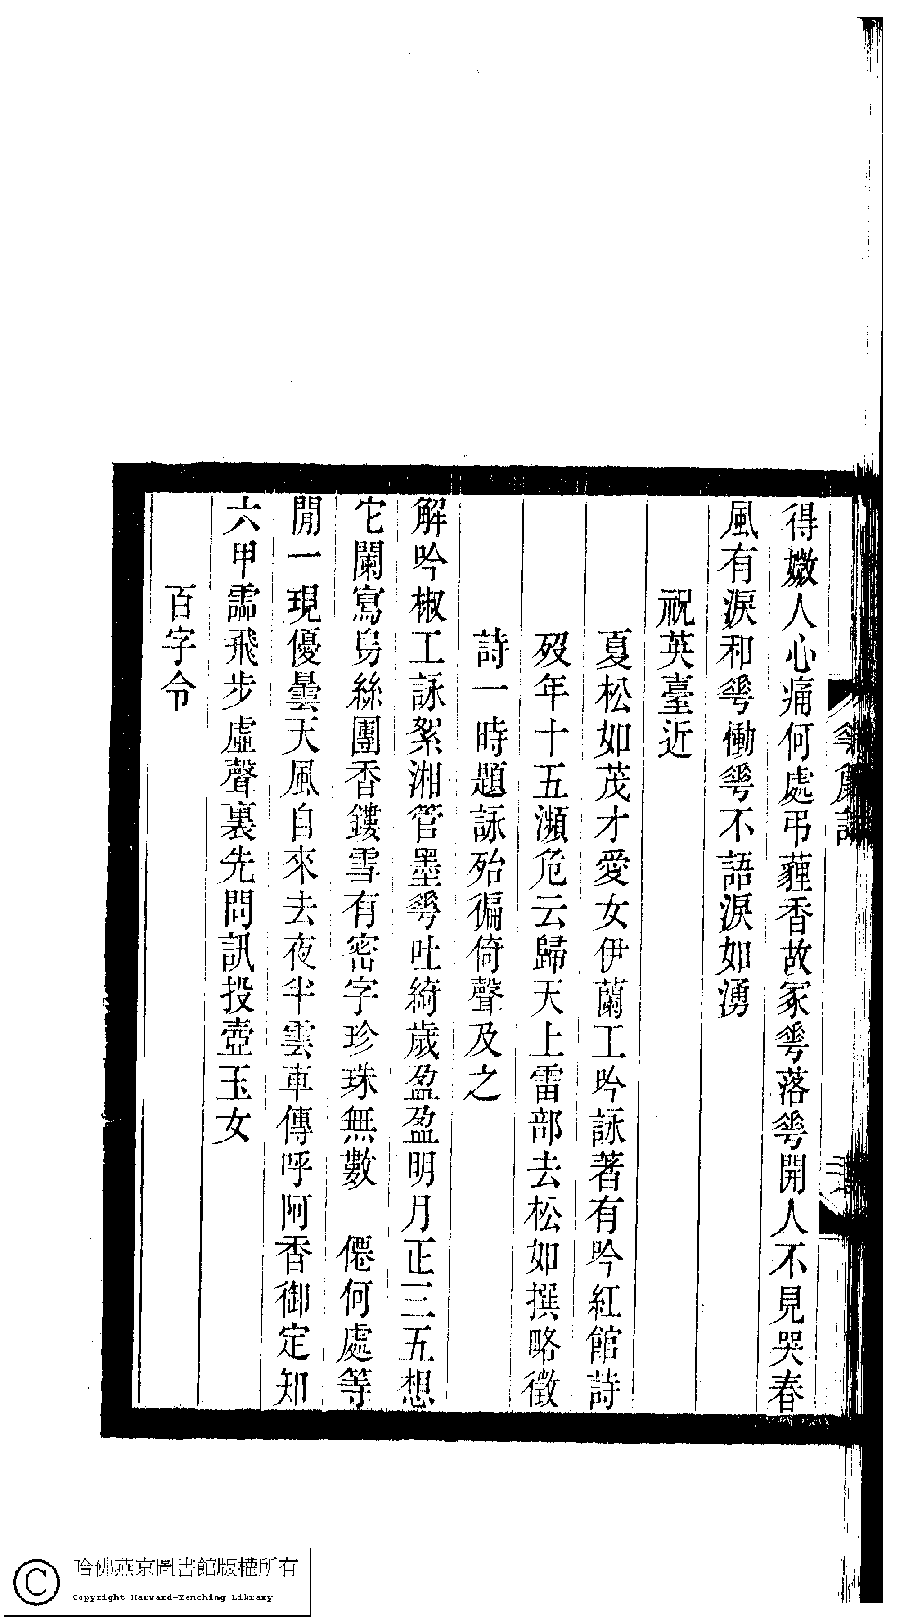 得媺人心痛何處弔薶香故冢蕚落蕚開人不見哭春
風有淚和蕚慟蕚不語淚如湧
祝英臺近
夏松如茂才愛女伊蘭工吟詠著有吟紅館詩
歿年十五瀕危云歸天上雷部去松如撰略徵
詩一時題詠殆徧倚聲及之
解吟椒工詠絮湘管墨蕚吐綺歲盈盈明月正三五想
它闌寫烏絲團香鏤雪有密字珍珠無數　僊何處等
閒一現優曇天風自來去夜半雲車傳呼阿香御定知
六甲靈飛步虛聲裏先問訊投壺玉女
百字令
哈佛燕京圖書館版權所有
Copyright Harvard-Yenching Library